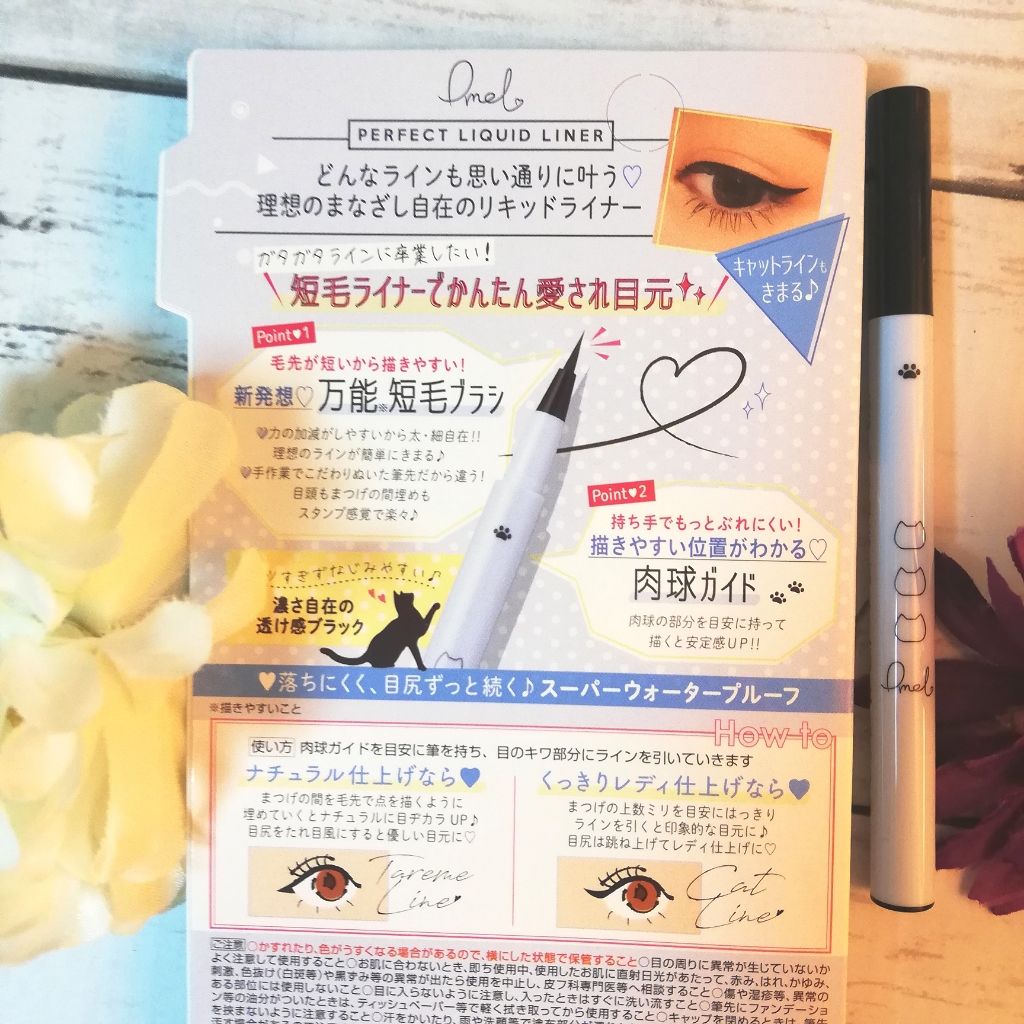 Pmel
PERFECT LIQUID LINER
どんなラインも思い通りに叶う♡
理想のまなざし自在のリキッドライナー
キャットラインも
きまる♪
ガタガタラインに卒業したい!
短毛ライナーでかんたん愛され目元
Point♥1
毛先が短いから描きやすい!
新発想♡万能※短毛ブラシ
♥力の加減がしやすいから太・細自在!!
理想のラインが簡単にきまる♪
♥手作業でこだわりぬいた筆先だから違う!
目頭もまつげの間埋めも
スタンプ感覚で楽々♪
Point♥2
持ち手でもっとぶれにくい!
描きやすい位置がわかる♡
肉球ガイド
肉球の部分を目安に持って
描くと安定感UP!!
すぎずなじみやすい♪
濃さ自在の
透け感ブラック
♥落ちにくく、目尻ずっと続く♪スーパーウォータープルーフ
※描きやすいこと
How to
使い方 肉球ガイドを目安に筆を持ち、目のキワ部分にラインを引いていきます
ナチュラル仕上げなら♥
まつげの間を毛先で点を描くように
埋めていくとナチュラルに目ヂカラUP♪
目尻をたれ目風にすると優しい目元に♡
Tareme
Line♥
くっきりレディ仕上げなら♥
まつげの上数ミリを目安にはっきり
ラインを引くと印象的な目元に♪
目尻は跳ね上げてレディ仕上げに♡
Cat
Line♥
ご注意 ○かすれたり、色がうすくなる場合があるので、横にした状態で保管すること○目の周りに異常が生じていないか
よく注意して使用すること○お肌に合わないとき、即ち使用中、使用したお肌に直射日光があたって、赤み、はれ、かゆみ、
刺激、色抜け(白斑等)や黒ずみ等の異常が出たら使用を中止し、皮フ科専門医等へ相談すること○傷や湿疹等、異常の
ある部位には使用しないこと○目に入らないように注意し、入ったときはすぐに洗い流すこと○筆先にファンデーショ
ン等の油分がついたときは、ティッシュペーパー等で軽く拭き取ってから使用すること○キャップを閉めるときは、筆先
を挟まないように注意すること○汗をかいたり、雨や洗顔等で
Pmel